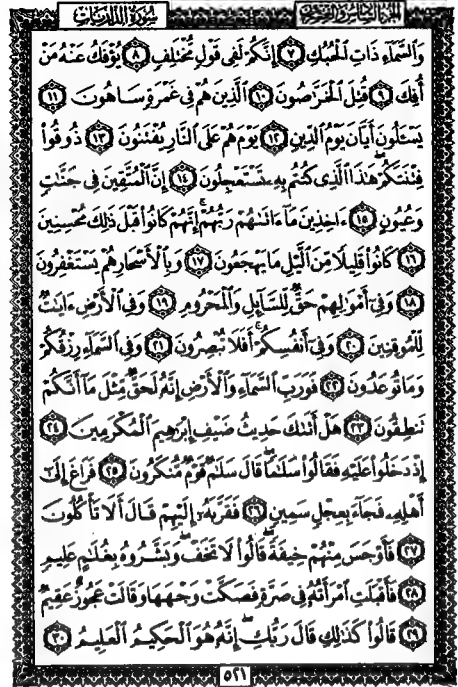 سورة الذاريات الجزء السادس والعشرون
وَالسَّمَآءِ ذَاتِ الْحُبُكِ ﴿٧﴾ إِنَّكُمْ لَفِى قَوْلٍ مُّخْتَلِفٍ ﴿٨﴾ يُؤْفَكُ عَنْهُ مَنْ
أُفِكَ ﴿٩﴾ قُتِلَ الْخَرَّٰصُونَ ﴿١٠﴾ الَّذِينَ هُمْ فِى غَمْرَةٍ سَاهُونَ ﴿١١﴾
يَسْـَٔلُونَ أَيَّانَ يَوْمُ الدِّينِ ﴿١٢﴾ يَوْمَ هُمْ عَلَى النَّارِ يُفْتَنُونَ ﴿١٣﴾ ذُوقُوا۟
فِتْنَتَكُمْ هَٰذَا الَّذِى كُنتُم بِهِۦ تَسْتَعْجِلُونَ ﴿١٤﴾ إِنَّ الْمُتَّقِينَ فِى جَنَّٰتٍ
وَعُيُونٍ ﴿١٥﴾ ءَاخِذِينَ مَآ ءَاتَىٰهُمْ رَبُّهُمْ ۚ إِنَّهُمْ كَانُوا۟ قَبْلَ ذَٰلِكَ مُحْسِنِينَ
﴿١٦﴾ كَانُوا۟ قَلِيلًا مِّنَ الَّيْلِ مَا يَهْجَعُونَ ﴿١٧﴾ وَبِالْأَسْحَارِ هُمْ يَسْتَغْفِرُونَ
﴿١٨﴾ وَفِىٓ أَمْوَٰلِهِمْ حَقٌّ لِّلسَّآئِلِ وَالْمَحْرُومِ ﴿١٩﴾ وَفِى الْأَرْضِ ءَايَٰتٌ
لِّلْمُوقِنِينَ ﴿٢٠﴾ وَفِىٓ أَنفُسِكُمْ ۚ أَفَلَا تُبْصِرُونَ ﴿٢١﴾ وَفِى السَّمَآءِ رِزْقُكُمْ
وَمَا تُوعَدُونَ ﴿٢٢﴾ فَوَرَبِّ السَّمَآءِ وَالْأَرْضِ إِنَّهُۥ لَحَقٌّ مِّثْلَ مَآ أَنَّكُمْ
تَنطِقُونَ ﴿٢٣﴾ هَلْ أَتَىٰكَ حَدِيثُ ضَيْفِ إِبْرَٰهِيمَ الْمُكْرَمِينَ ﴿٢٤﴾
إِذْ دَخَلُوا۟ عَلَيْهِ فَقَالُوا۟ سَلَٰمًا ۖ قَالَ سَلَٰمٌ قَوْمٌ مُّنكَرُونَ ﴿٢٥﴾ فَرَاغَ إِلَىٰٓ
أَهْلِهِۦ فَجَآءَ بِعِجْلٍ سَمِينٍ ﴿٢٦﴾ فَقَرَّبَهُۥٓ إِلَيْهِمْ قَالَ أَلَا تَأْكُلُونَ
﴿٢٧﴾ فَأَوْجَسَ مِنْهُمْ خِيفَةً ۖ قَالُوا۟ لَا تَخَفْ ۖ وَبَشَّرُوهُ بِغُلَٰمٍ عَلِيمٍ
﴿٢٨﴾ فَأَقْبَلَتِ امْرَأَتُهُۥ فِى صَرَّةٍ فَصَكَّتْ وَجْهَهَا وَقَالَتْ عَجُوزٌ عَقِيمٌ
﴿٢٩﴾ قَالُوا۟ كَذَٰلِكِ قَالَ رَبُّكِ ۖ إِنَّهُۥ هُوَ الْحَكِيمُ الْعَلِيمُ ﴿٣٠﴾
٥٢١